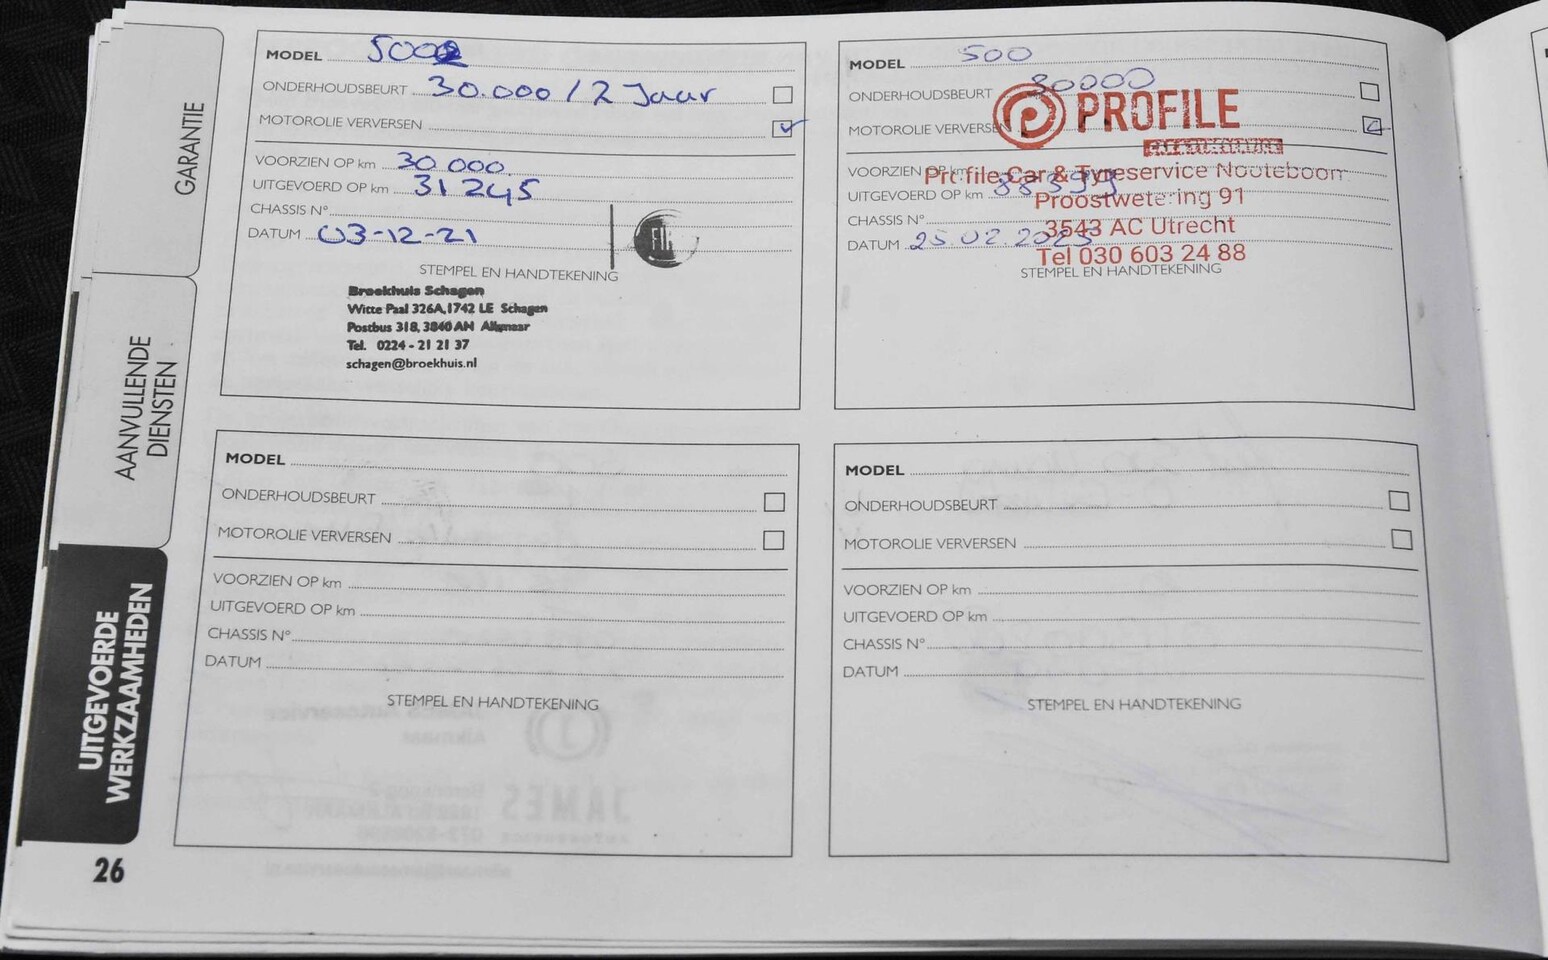 GARANTIE
AANVULLENDE
DIENSTEN
UITGEVOERDE
WERKZAAMHEDEN
26
MODEL
ONDERHOUDSBEURT 30.000 / 2 Jaar
MOTOROLIE VERVERSEN
VOORZIEN OP km 30.000
UITGEVOERD OP km 31245
CHASSIS N°
DATUM 03-12-21
STEMPEL EN HANDTEKENING
Broekhuis Schagen
Witte Paal 326A, 1742 LE Schagen
Postbus 318, 3840 AN Alkmaar
Tel. 0224 - 21 21 37
schagen@broekhuis.nl
MODEL 500
ONDERHOUDSBEURT 30000
PROFILE
MOTOROLIE VERVERSEN
VOORZIEN OP km
Profile Car & Tyreservice Nooteboom
UITGEVOERD OP km
Proostwetering 91
CHASSIS N°
3543 AC Utrecht
DATUM 25.02.2025
Tel 030 603 24 88
STEMPEL EN HANDTEKENING
MODEL
ONDERHOUDSBEURT
MOTOROLIE VERVERSEN
VOORZIEN OP km
UITGEVOERD OP km
CHASSIS N°
DATUM
STEMPEL EN HANDTEKENING
MODEL
ONDERHOUDSBEURT
MOTOROLIE VERVERSEN
VOORZIEN OP km
UITGEVOERD OP km
CHASSIS N°
DATUM
STEMPEL EN HANDTEKENING